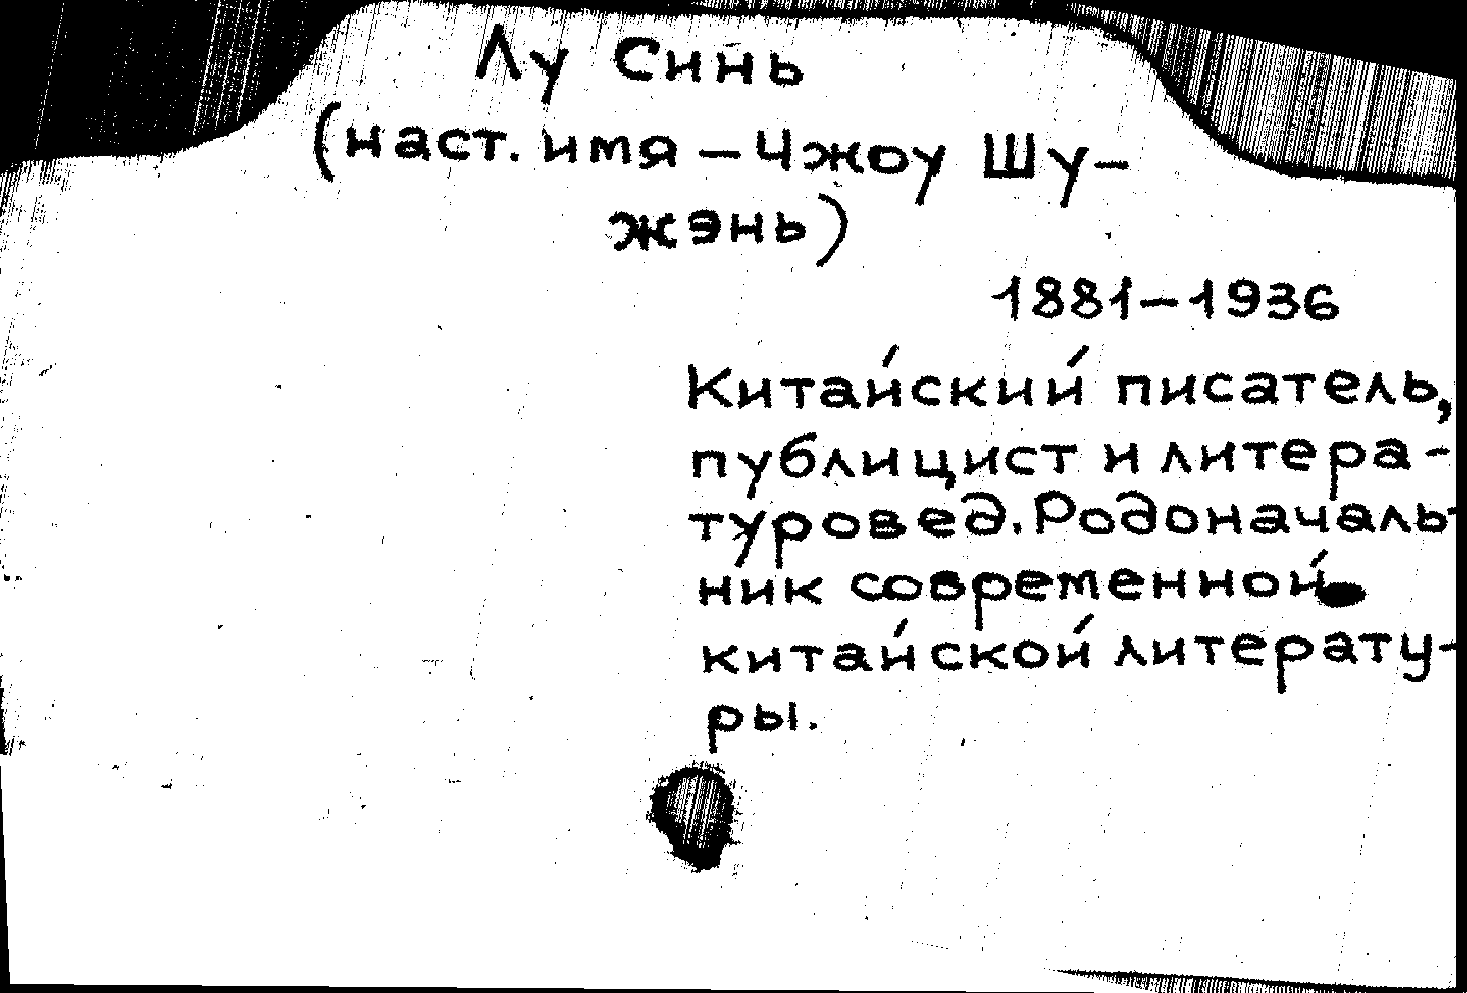 Лу Синь
(наст. имя – Чжоу Шу-
жэнь)
1881–1936
Китайский писатель,
публицист и литера-
туровед. Родоначаль-
ник современной
китайской литерату-
ры.